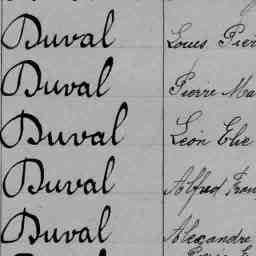 Duval Louis Pier
Duval Pierre Ma
Duval Léon Elie
Duval Alfred Fran
Duval Alexandre